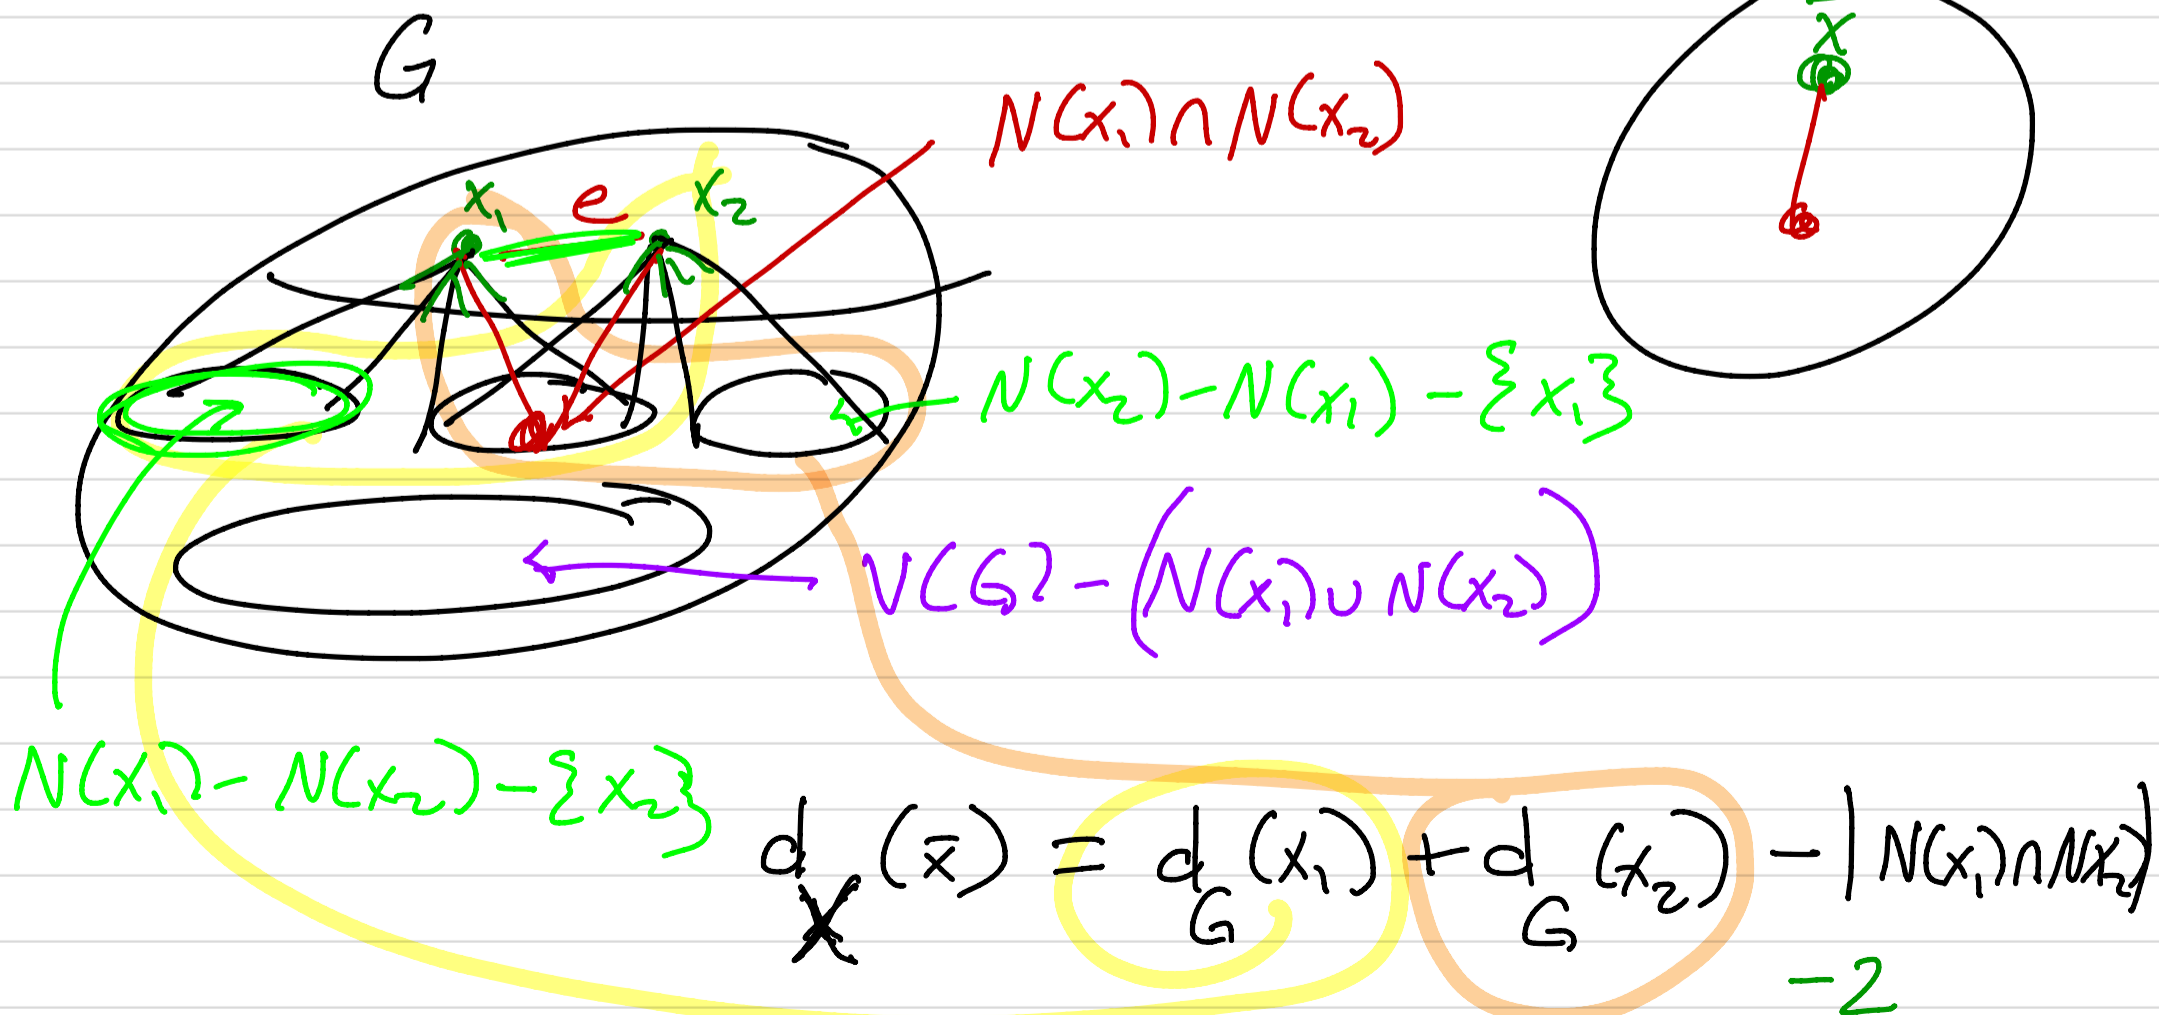 G
x̄
N(x₁)∩N(x₂)
x₁ e x₂
N(x₂)-N(x₁)-{x₁}
V(G)-(N(x₁)∪N(x₂))
N(x₁)-N(x₂)-{x₂}
d (x̄) = d_G(x₁) + d_G(x₂) - |N(x₁)∩N(x₂)|
-2